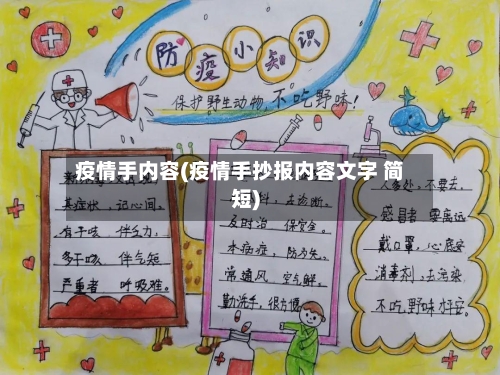 防疫小知识
保护野生动物,不吃野味!
疫情手内容(疫情手抄报内容文字 简
短)
其症状,记心间。
有干咳 伴乏力,
多干咳 伴气短
严重者 呼吸难。
及时治 保安全。
本病症,防为先。
常通风 空气鲜。
勤洗手,很方便
人多处,不要去,
感冒者 要离远
戴口罩,心底安
消毒剂,去污染
不吃野味才安。